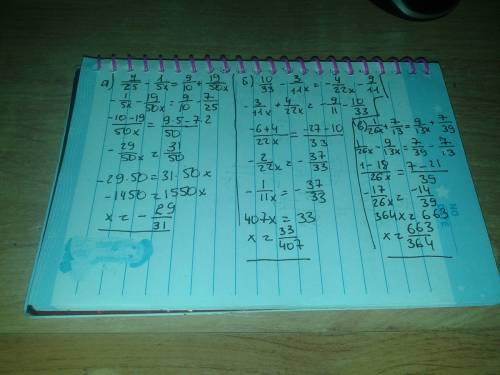 а) 7/25 - 1/5x = 9/10 + 19/50x
- 1/5x - 19/50x = 9/10 - 7/25
-10-19/50x = 9·5-7·2/50
- 29/50x = 31/50
-29·50=31·50x
-1450=1550x
x = - 29/31
б) 10/33 - 3/11x = - 4/22x - 9/11
- 3/11x + 4/22x = - 9/11 - 10/33
-6+4/22x = -27-10/33
- 2/22x = - 37/33
- 1/11x = - 37/33
407x = 33
x = 33/407
в) 1/26x + 7/13 = 9/13x + 7/39
1/26x - 9/13x = 7/39 - 7/13
1-18/26x = 7-21/39
-17/26x = -14/39
364x = 663
x = 663/364
NO